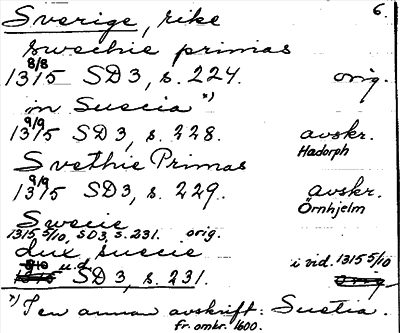 Sverige, rike 6.
swechie primas
1315 8/8 SD 3, s. 224. orig.
in Suecia *)
1315 9/9 SD 3, s. 228. avskr.
Hadorph
Svethie Primas
1315 9/9 SD 3, s. 229. avskr.
Örnhjelm
Swecie
1315 5/10, SD 3, s. 231. orig.
dux suecie i vid. 1315 5/10
u.d. SD 3, s. 231. orig.
*) I en annan avskrift: Suetia.
fr. omkr. 1600.